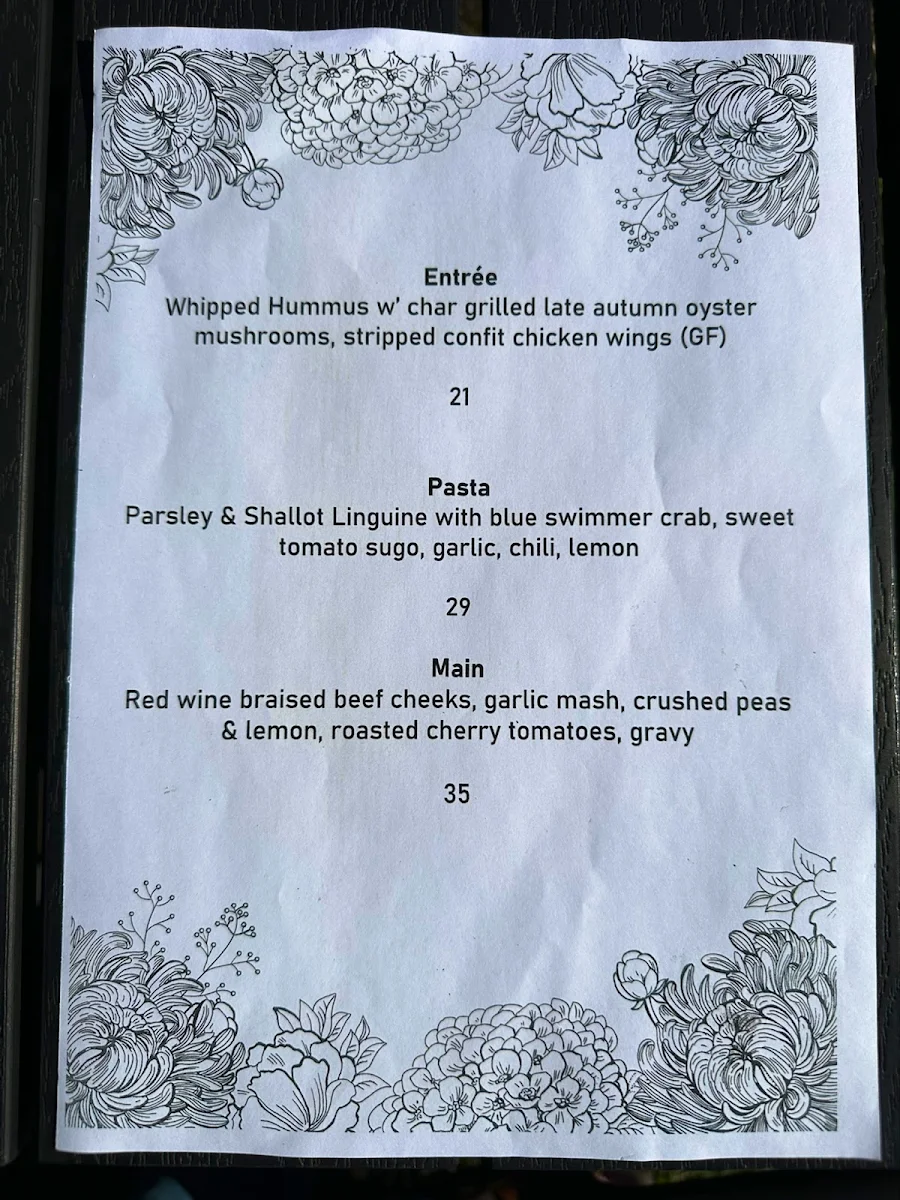 Entrée
Whipped Hummus w' char grilled late autumn oyster
mushrooms, stripped confit chicken wings (GF)
21
Pasta
Parsley & Shallot Linguine with blue swimmer crab, sweet
tomato sugo, garlic, chili, lemon
29
Main
Red wine braised beef cheeks, garlic mash, crushed peas
& lemon, roasted cherry tomatoes, gravy
35